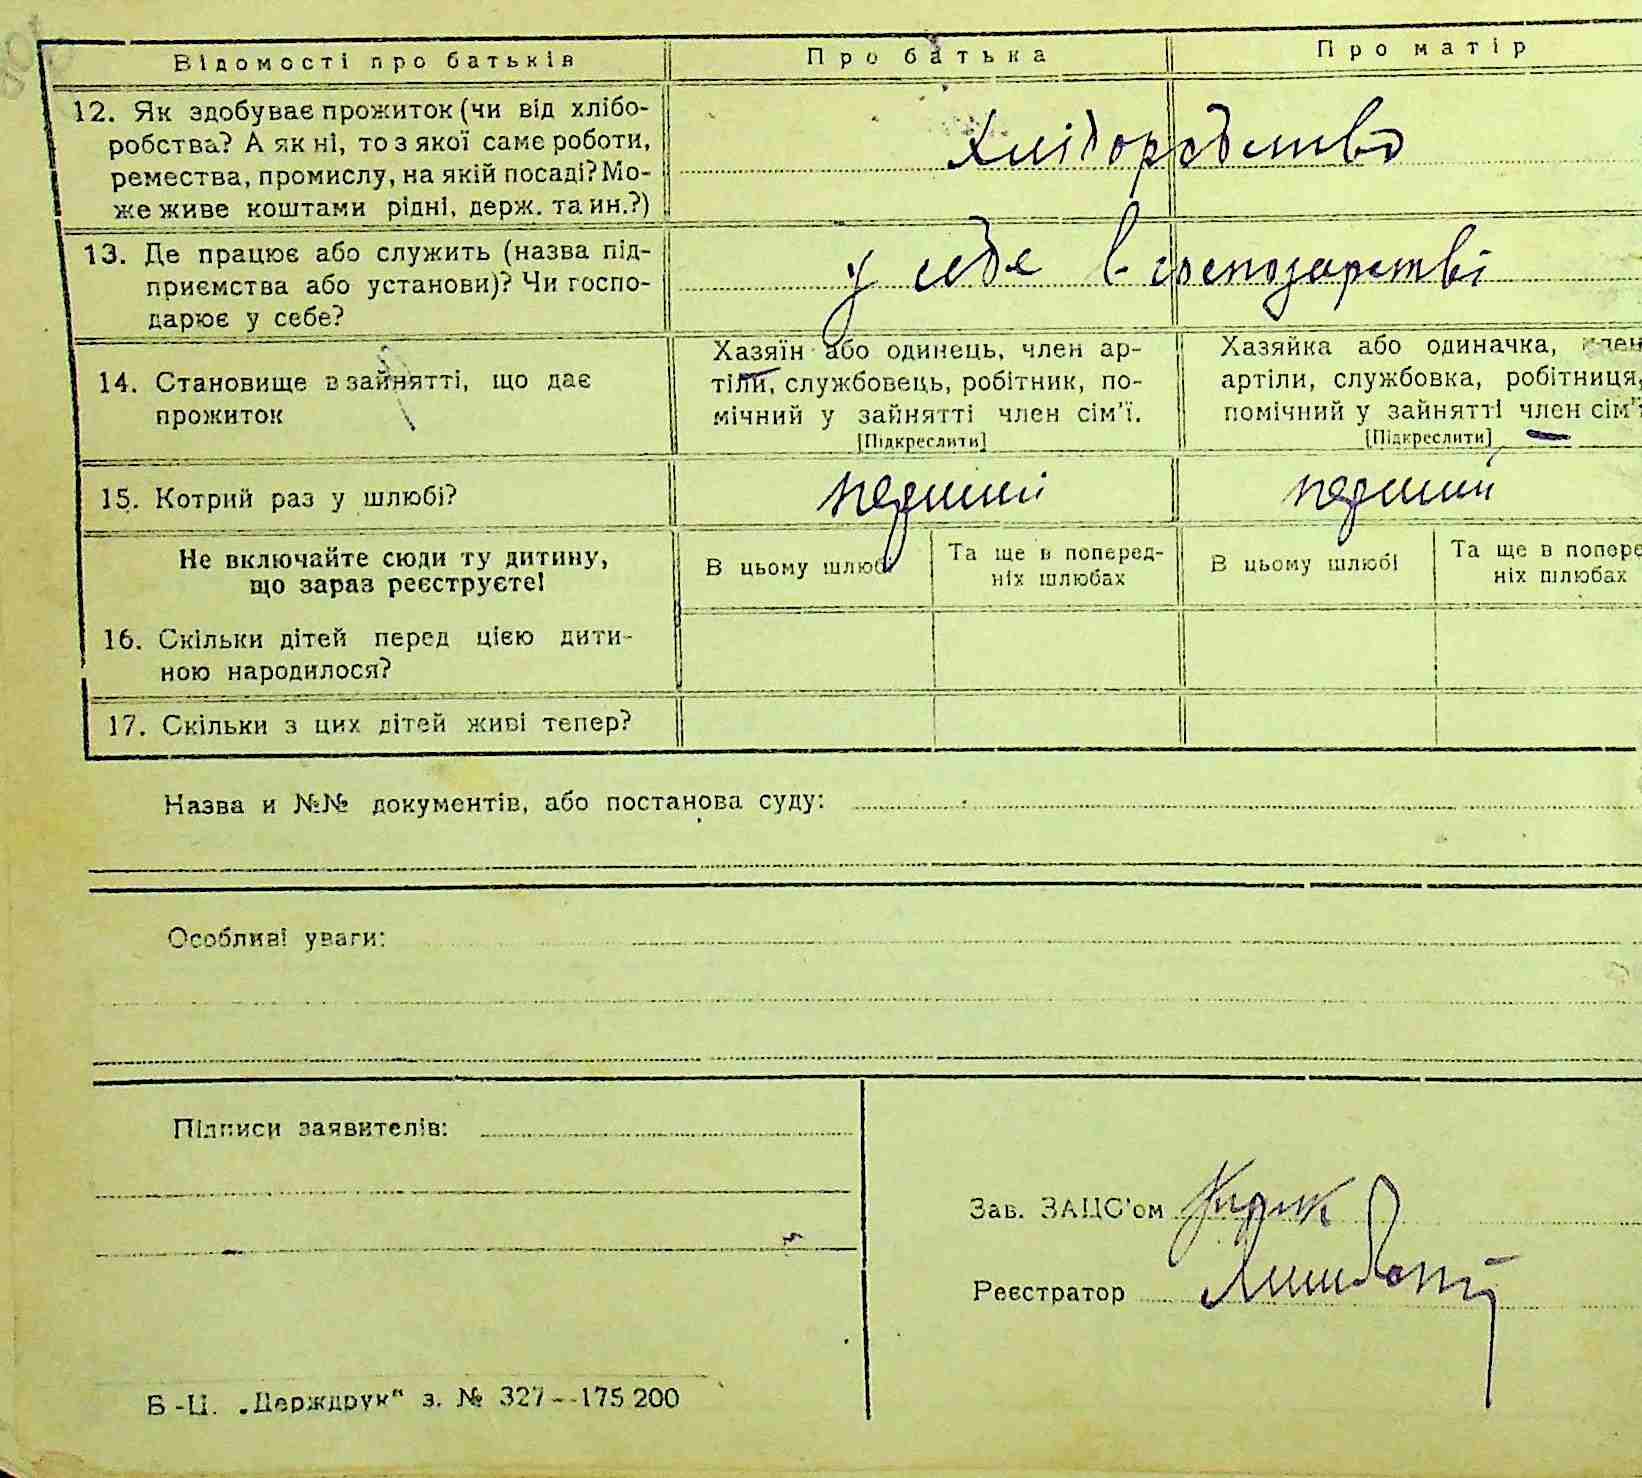 Відомості про батьків Про батька Про матір
12. Як здобуває прожиток (чи від хлібо-
робства? А як ні, то з якої саме роботи,
ремества, промислу, на якій посаді? Мо-
же живе коштами рідні, держ. та ин.?)
Хліборобство
13. Де працює або служить (назва під-
приємства або установи)? Чи госпо-
дарює у себе?
у себе в господарстві
14. Становище в зайнятті, що дає
прожиток
Хазяїн або одинець, член ар-
тіли, службовець, робітник, по-
мічний у зайнятті член сім'ї.
[Підкреслити]
Хазяйка або одиначка, член
артіли, службовка, робітниця,
помічний у зайнятті член сім'ї
[Підкреслити]
15. Котрий раз у шлюбі? перший перший
Не включайте сюди ту дитину,
що зараз реєструєте!
В цьому шлюбі
Та ще в поперед-
ніх шлюбах
В цьому шлюбі
Та ще в попере
ніх шлюбах
16. Скільки дітей перед цією дити-
ною народилося?
17. Скільки з цих дітей живі тепер?
Назва и №№ документів, або постанова суду:
Особливі уваги:
Підписи заявителів:
Зав. ЗАЦС'ом
Реєстратор
Б-Ц. „Держдрук“ з. № 327—175 200